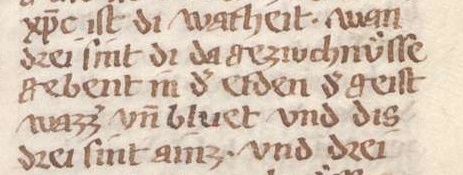 xp̅c ist di warheit. wan
drei sint di da gezwchnüsse
gebent in d᷑ erden d᷑ geist
wazz᷑ vn̄ bluet vnd dis
drei sint ainz. vnd drei